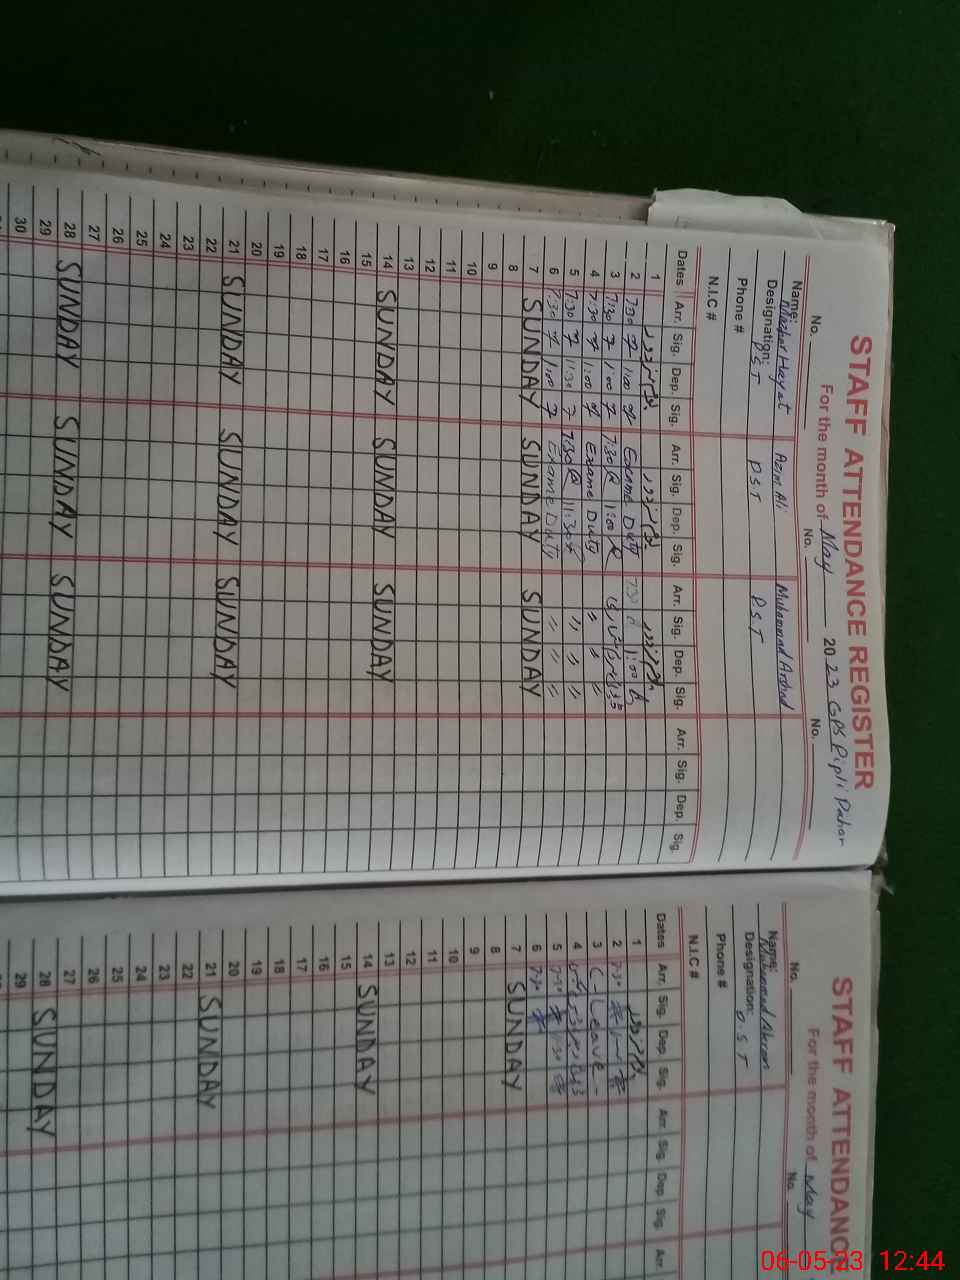 STAFF ATTENDANCE REGISTER
For the month of May 2023 GPS Pipli Pahar
No. No. No.
Name: Mazhar Hayat Azim Ali Muhammad Arshad
Designation: P.S.T P.S.T P.S.T
Phone #
N.I.C #
Dates Arr. Sig. Dep. Sig. Arr. Sig. Dep. Sig. Arr. Sig. Dep. Sig. Arr. Sig. Dep. Sig.
1
2 7:30 1:00 Exame Duty 7:30 1:00
3 7:30 1:00 7:30 1:00
4 7:30 1:00 Exame Duty " " "
5 7:30 11:30 7:30 11:30 " " "
6 7:30 1:00 Exame Duty " " "
7 SUNDAY SUNDAY SUNDAY
8
9
10
11
12
13
14 SUNDAY SUNDAY SUNDAY
15
16
17
18
19
20
21 SUNDAY SUNDAY SUNDAY
22
23
24
25
26
27
28 SUNDAY SUNDAY SUNDAY
29
30
STAFF ATTENDANCE
For the month of May
No. No.
Name: Muhammad Akram
Designation: P.S.T
Phone #
N.I.C #
Dates Arr. Sig. Dep. Sig. Arr. Sig. Dep. Sig. Arr.
1
2
3 C-Leave-
4
5
6
7 SUNDAY
8
9
10
11
12
13
14 SUNDAY
15
16
17
18
19
20
21 SUNDAY
22
23
24
25
26
27
28 SUNDAY
29
06-05-23 12:44